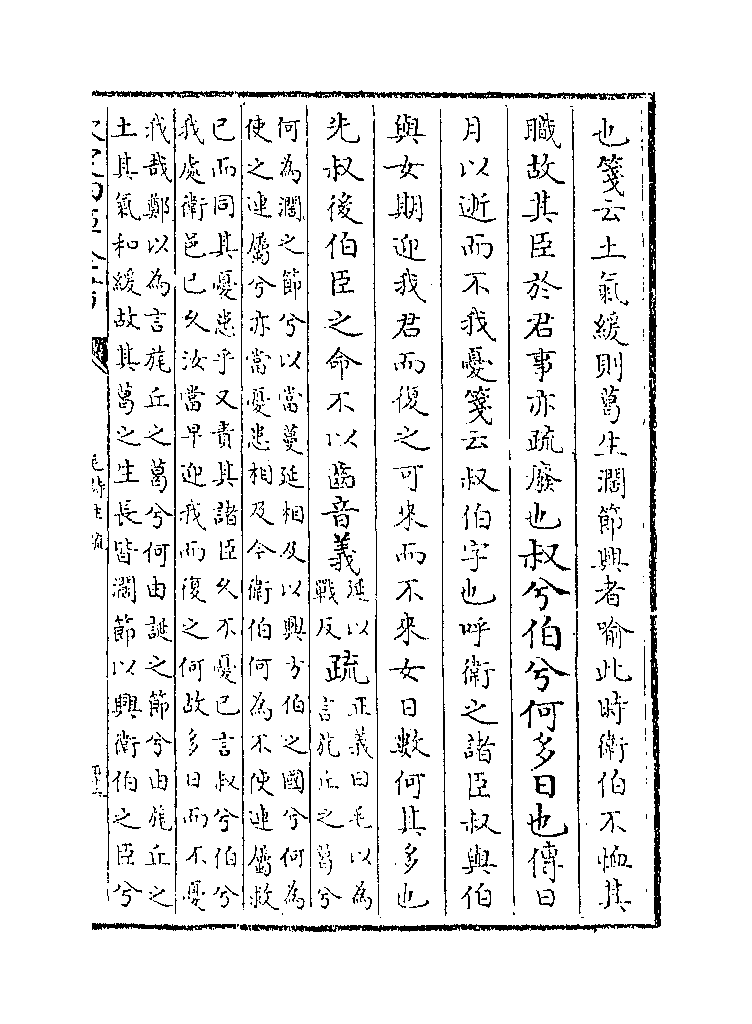 也箋云土氣緩則葛生濶節興者喻此時衛伯不恤其
職故其臣於君事亦疏廢也叔兮伯兮何多日也傳日
月以逝而不我憂箋云叔伯字也呼衛之諸臣叔與伯
與女期迎我君而復之可来而不来女日數何其多也
先叔後伯臣之命不以齒音義延以
戰反疏正義曰毛以為
言旄丘之葛兮
何為濶之節兮以當蔓延相及以興方伯之國兮何為
使之連屬兮亦當憂患相及今衛伯何為不使連屬救
已而同其憂患乎又責其諸臣久不憂已言叔兮伯兮
我處衛邑已久汝當早迎我而復之何故多日而不憂
我哉鄭以為言旄丘之葛兮何由誕之節兮由旄丘之
土其氣和緩故其葛之生長皆濶節以興衛伯之臣兮